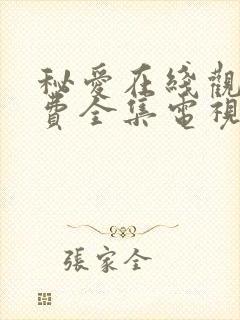 秘愛在綫觀
費全集電視
張家全